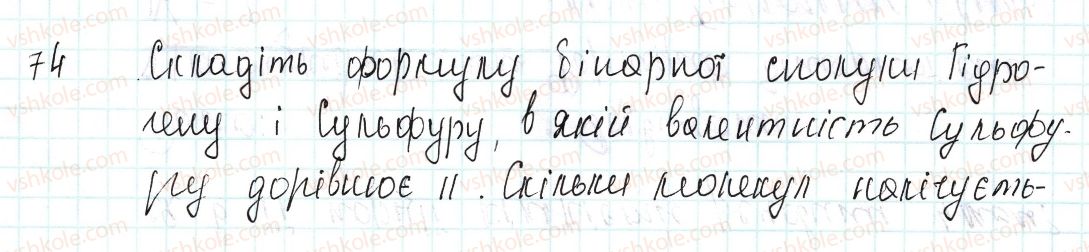 74 Складіть формулу бінарної сполуки Гідро-
гену і Сульфуру, в якій валентність Сульфу-
ру дорівнює II. Скільки молекул налічуєть-